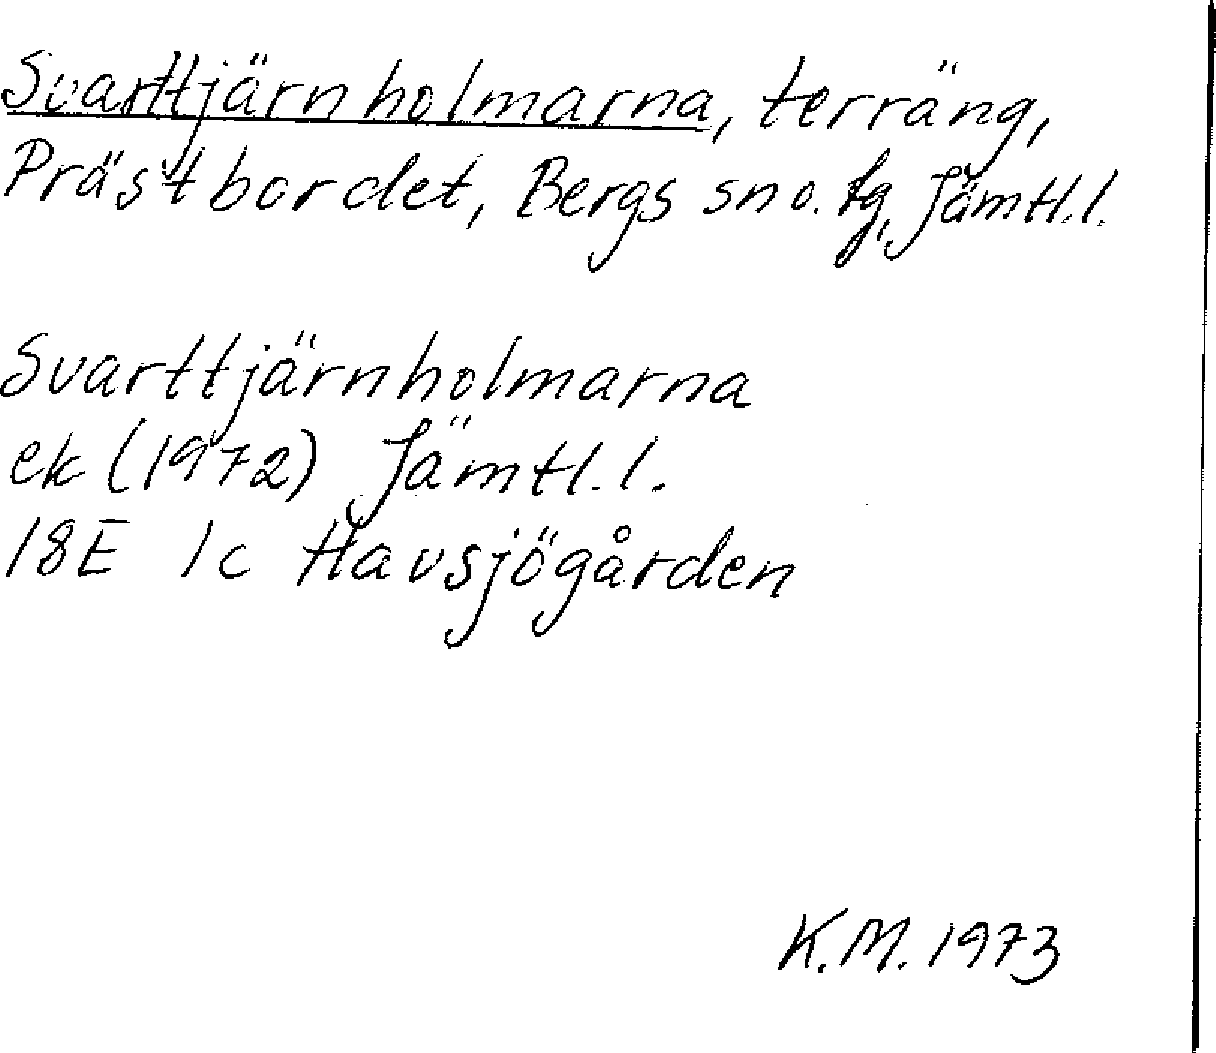 Svarttjärnholmarna, terräng,
Prästbordet, Bergs sn o. tg, Jämtl.l.
Svarttjärnholmarna
ek (1972) Jämtl.l.
18E 1c Havsjögården
K.M. 1973